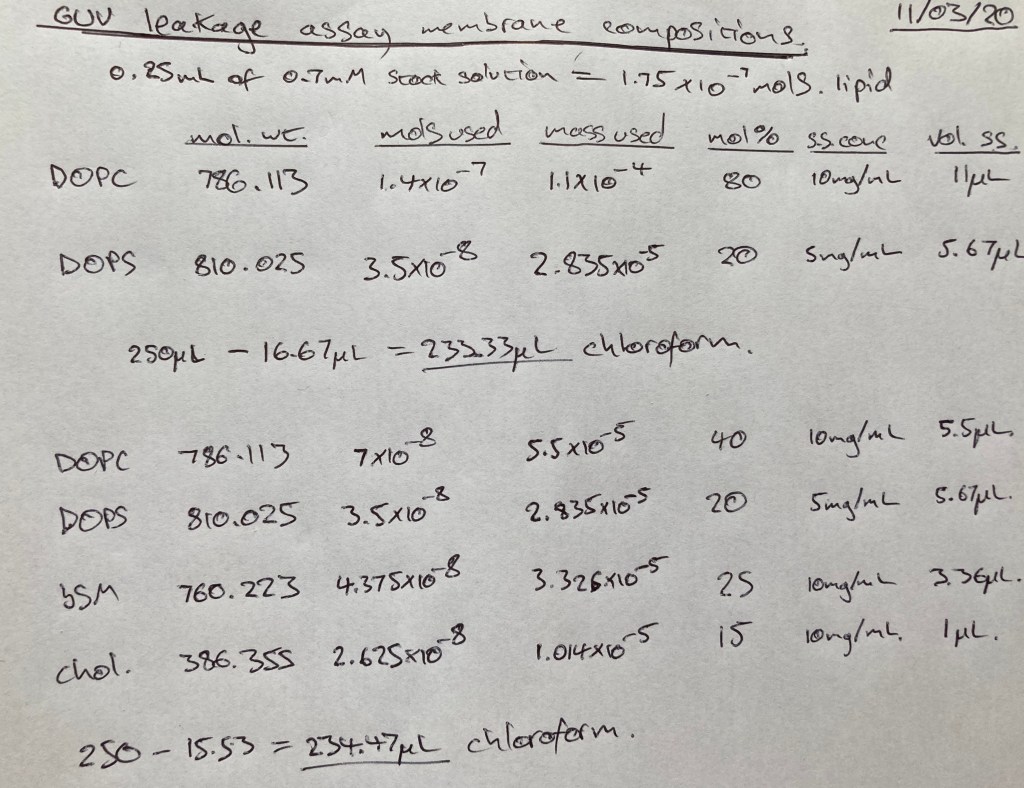 GUV leakage assay membrane compositions. 11/03/20
0.25mL of 0.7mM stock solution = 1.75x10⁻⁷ mols. lipid
mol. wt. mols used mass used mol% s.s. conc vol. ss.
DOPC 786.113 1.4x10⁻⁷ 1.1x10⁻⁴ 80 10mg/mL 11µL
DOPS 810.025 3.5x10⁻⁸ 2.835x10⁻⁵ 20 5mg/mL 5.67µL
250µL - 16.67µL = 233.33µL chloroform.
DOPC 786.113 7x10⁻⁸ 5.5x10⁻⁵ 40 10mg/mL 5.5µL
DOPS 810.025 3.5x10⁻⁸ 2.835x10⁻⁵ 20 5mg/mL 5.67µL.
bSM 760.223 4.375x10⁻⁸ 3.326x10⁻⁵ 25 10mg/mL 3.36µL.
chol. 386.355 2.625x10⁻⁸ 1.014x10⁻⁵ 15 10mg/mL. 1µL.
250 - 15.53 = 234.47µL chloroform.